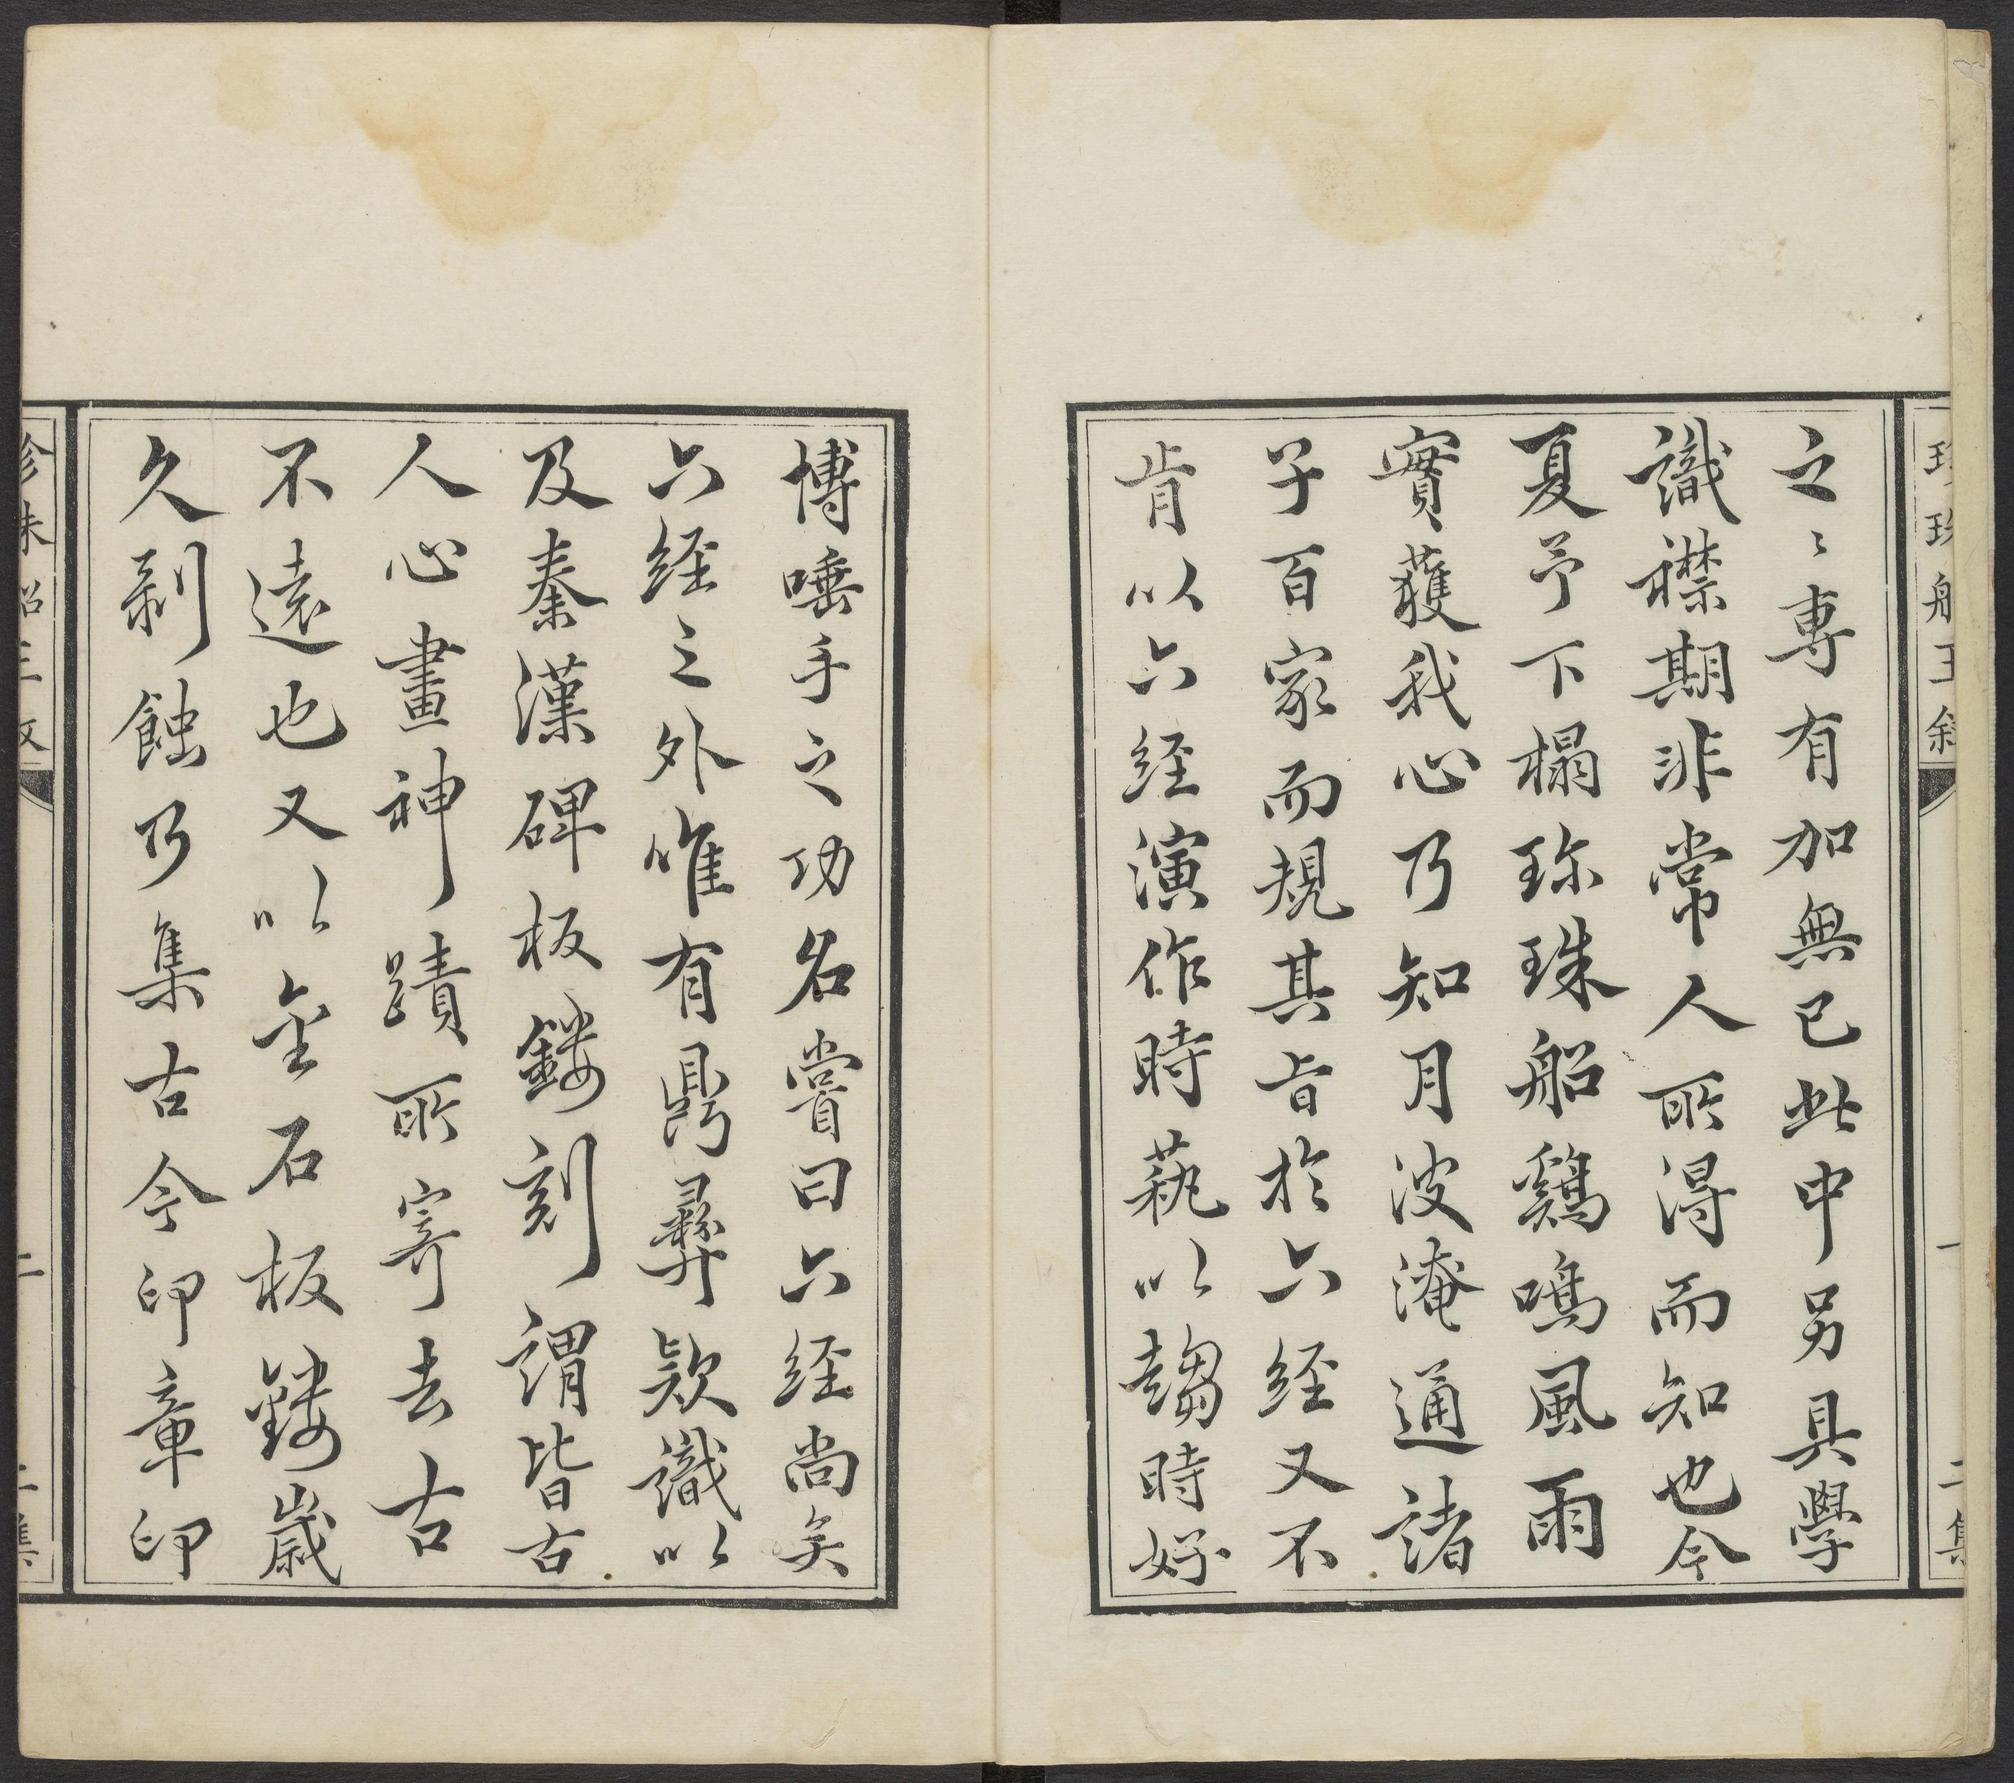 之〻專有加無已此中另具學
識襟期非常人所得而知也今
夏予下榻珎珠船鷄鳴風雨
實獲我心乃知月波淹通諸
子百家而規其旨於六経又不
肯以六経演作時蓺以趨時好
博唾手之功名嘗曰六経尚矣
六経之外唯有鼎彛欵識以
及秦漢碑板鏤刻謂皆古
人心畫神蹟所寄去古
不遠也又以金石板鏤歲
久剥蝕乃集古今印章印